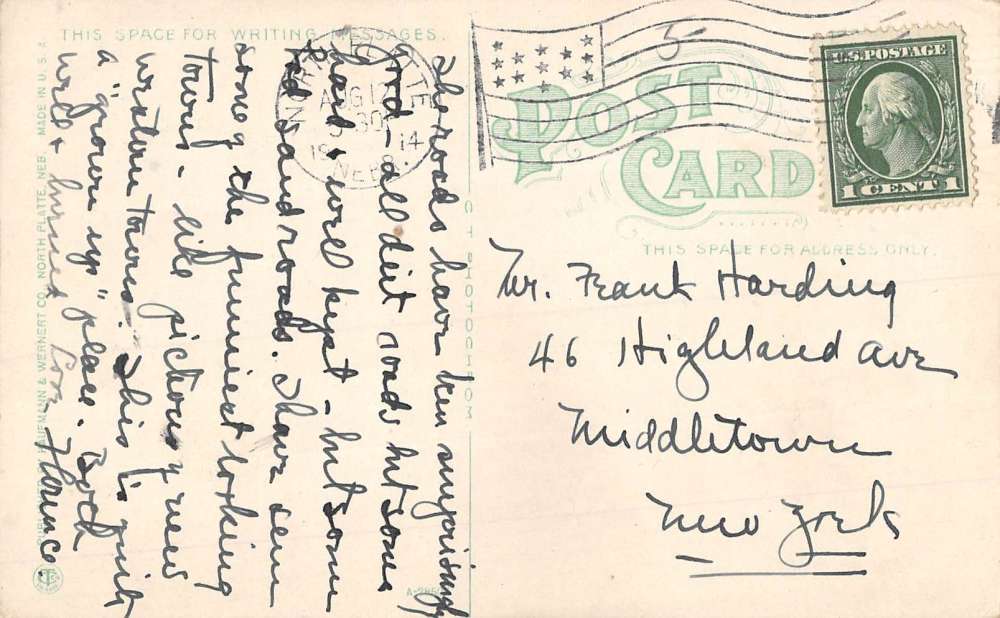 THIS SPACE FOR WRITING MESSAGES.
The roads have been surprisingly
good - all dirt roads but some
hard & well kept - but some
bad sand roads. I have seen
some of the funniest looking
towns - like pictures of new
western towns. This is quite
a "grown up" place. Both
well & Love Florence.
KAUFMANN & WERNERT CO., NORTH PLATTE, NEB. MADE IN U.S.A
C T PHOTOCHROM
NORTH PLATTE
AUG
30
1914
NEB.
5
POST
CARD
U.S. POSTAGE
1 CENT 1
THIS SPACE FOR ADDRESS ONLY.
Mr. Frank Harding
46 Highland Ave
Middletown
New York